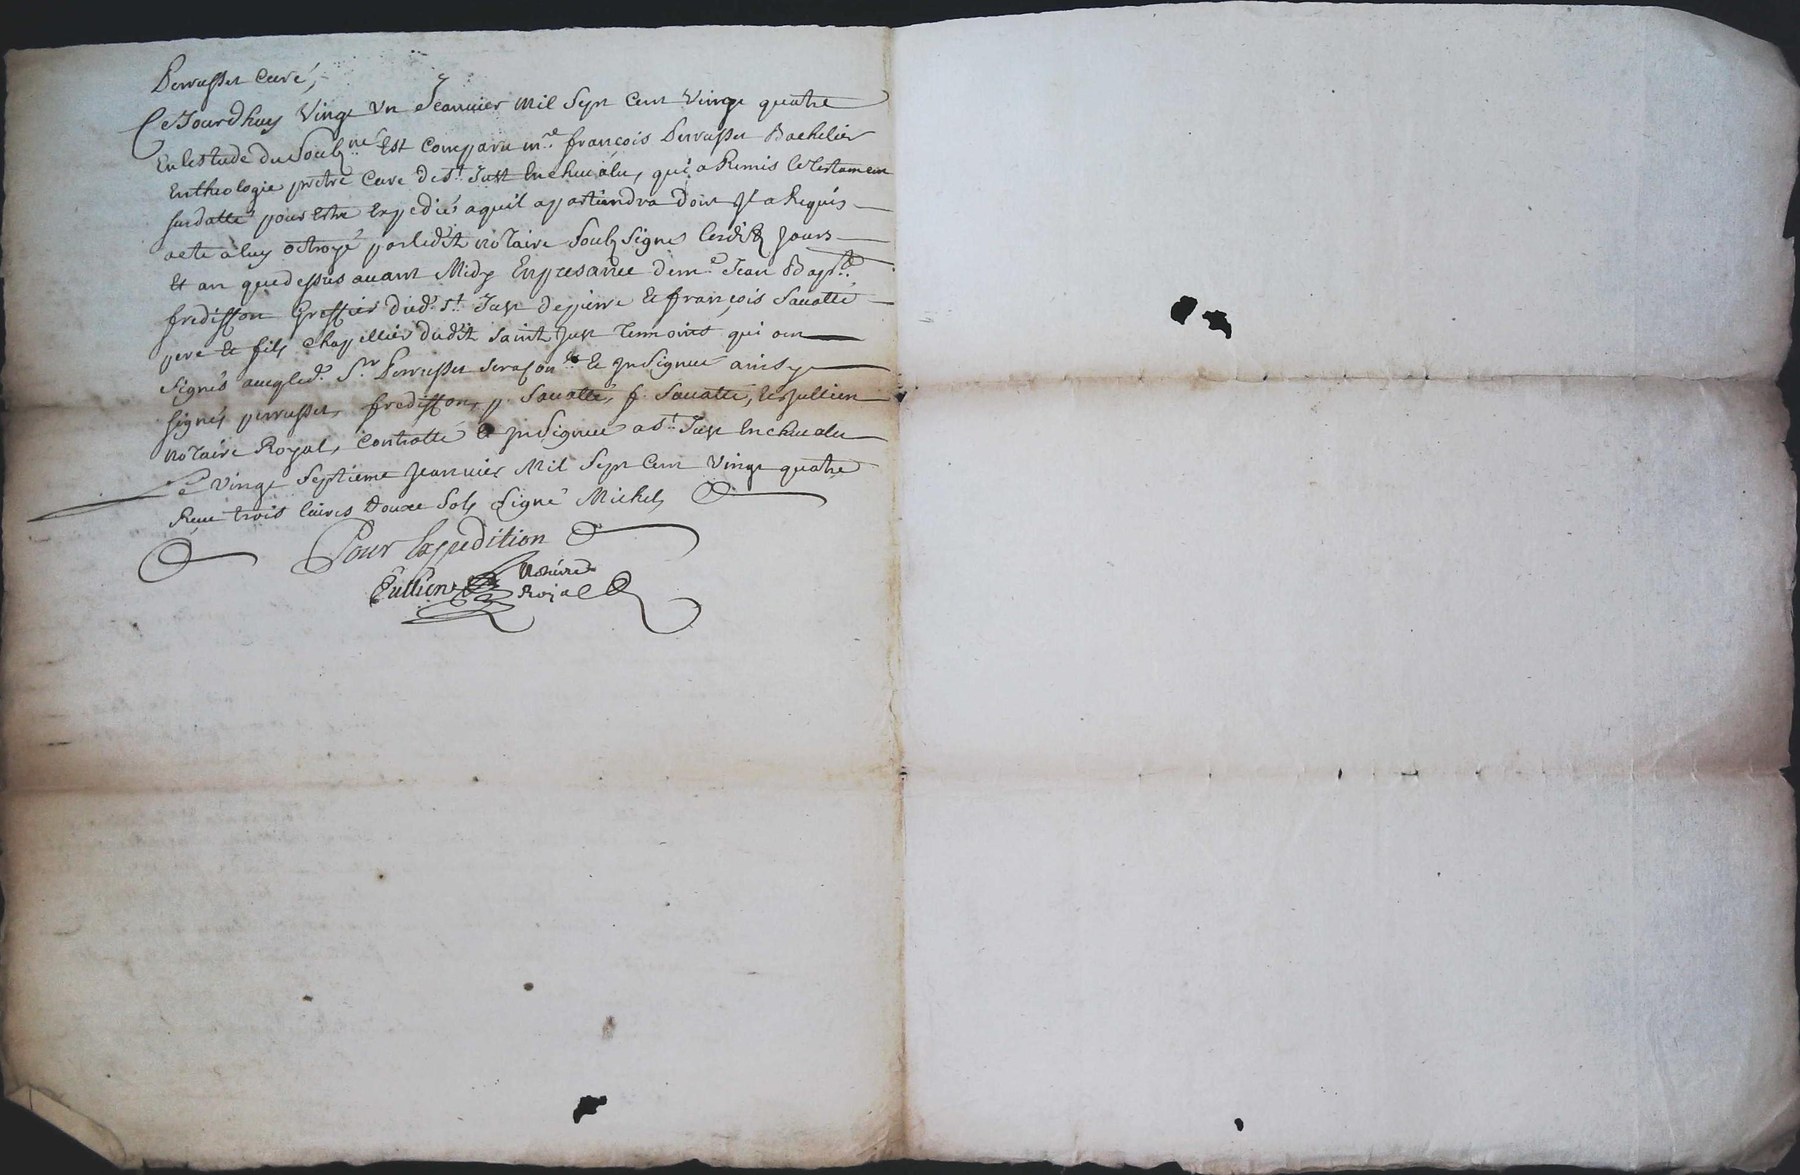 Perrusset curé,
Ce Jourdhuy Vingt Un Jeanvier mil Sept Cent Vingt quatre
En lestude du Soubz.né Est Comparu m.e françois Perrusset Bachelier
En theologie pretre Curé de S.t Just En chevalu, qui a Remis le testament
susdatté pour Estre Expedié a quil apartiendra dont Jl a Requis
acte a luy octroyé par ledit noTaire Soubz Signé Lesdits Jours
Et an que dessus avant Midy En presance de m.e Jean Bap.te
fredisson Greffier dud.t S.t Just de pierre Et françois Savatté
pere Et fils chapelliers dudit Saint Just Temoins qui ont
Signés avecq led.t S.r Perrusset Et Jnsignué ainsy
signés perrusset, fredisson, p. Savatté, f. Savatté, Et Jullien
noTaire Royal, Controllé Et Jnsignué a S.t Just En chevalu
Le Vingt Septieme Jeanvier Mil Sept Cent Vingt quatre
Reçu trois Livres Douze Sols Signé Michel,
Pour Expedition
Jullien Notaire
Royal